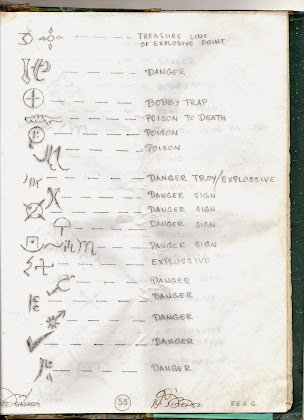 TREASURE LINE
OF EXPLOSIVE POINT
DANGER
BOBBY TRAP
POISON TO DEATH
POISON
POISON
DANGER TROY/EXPLOSSIVE
DANGER SIGN
DANGER SIGN
DANGER SIGN
DANGER SIGN
EXPLOSSIVE
DANGER
DANGER
DANGER
DANGER
DANGER
55